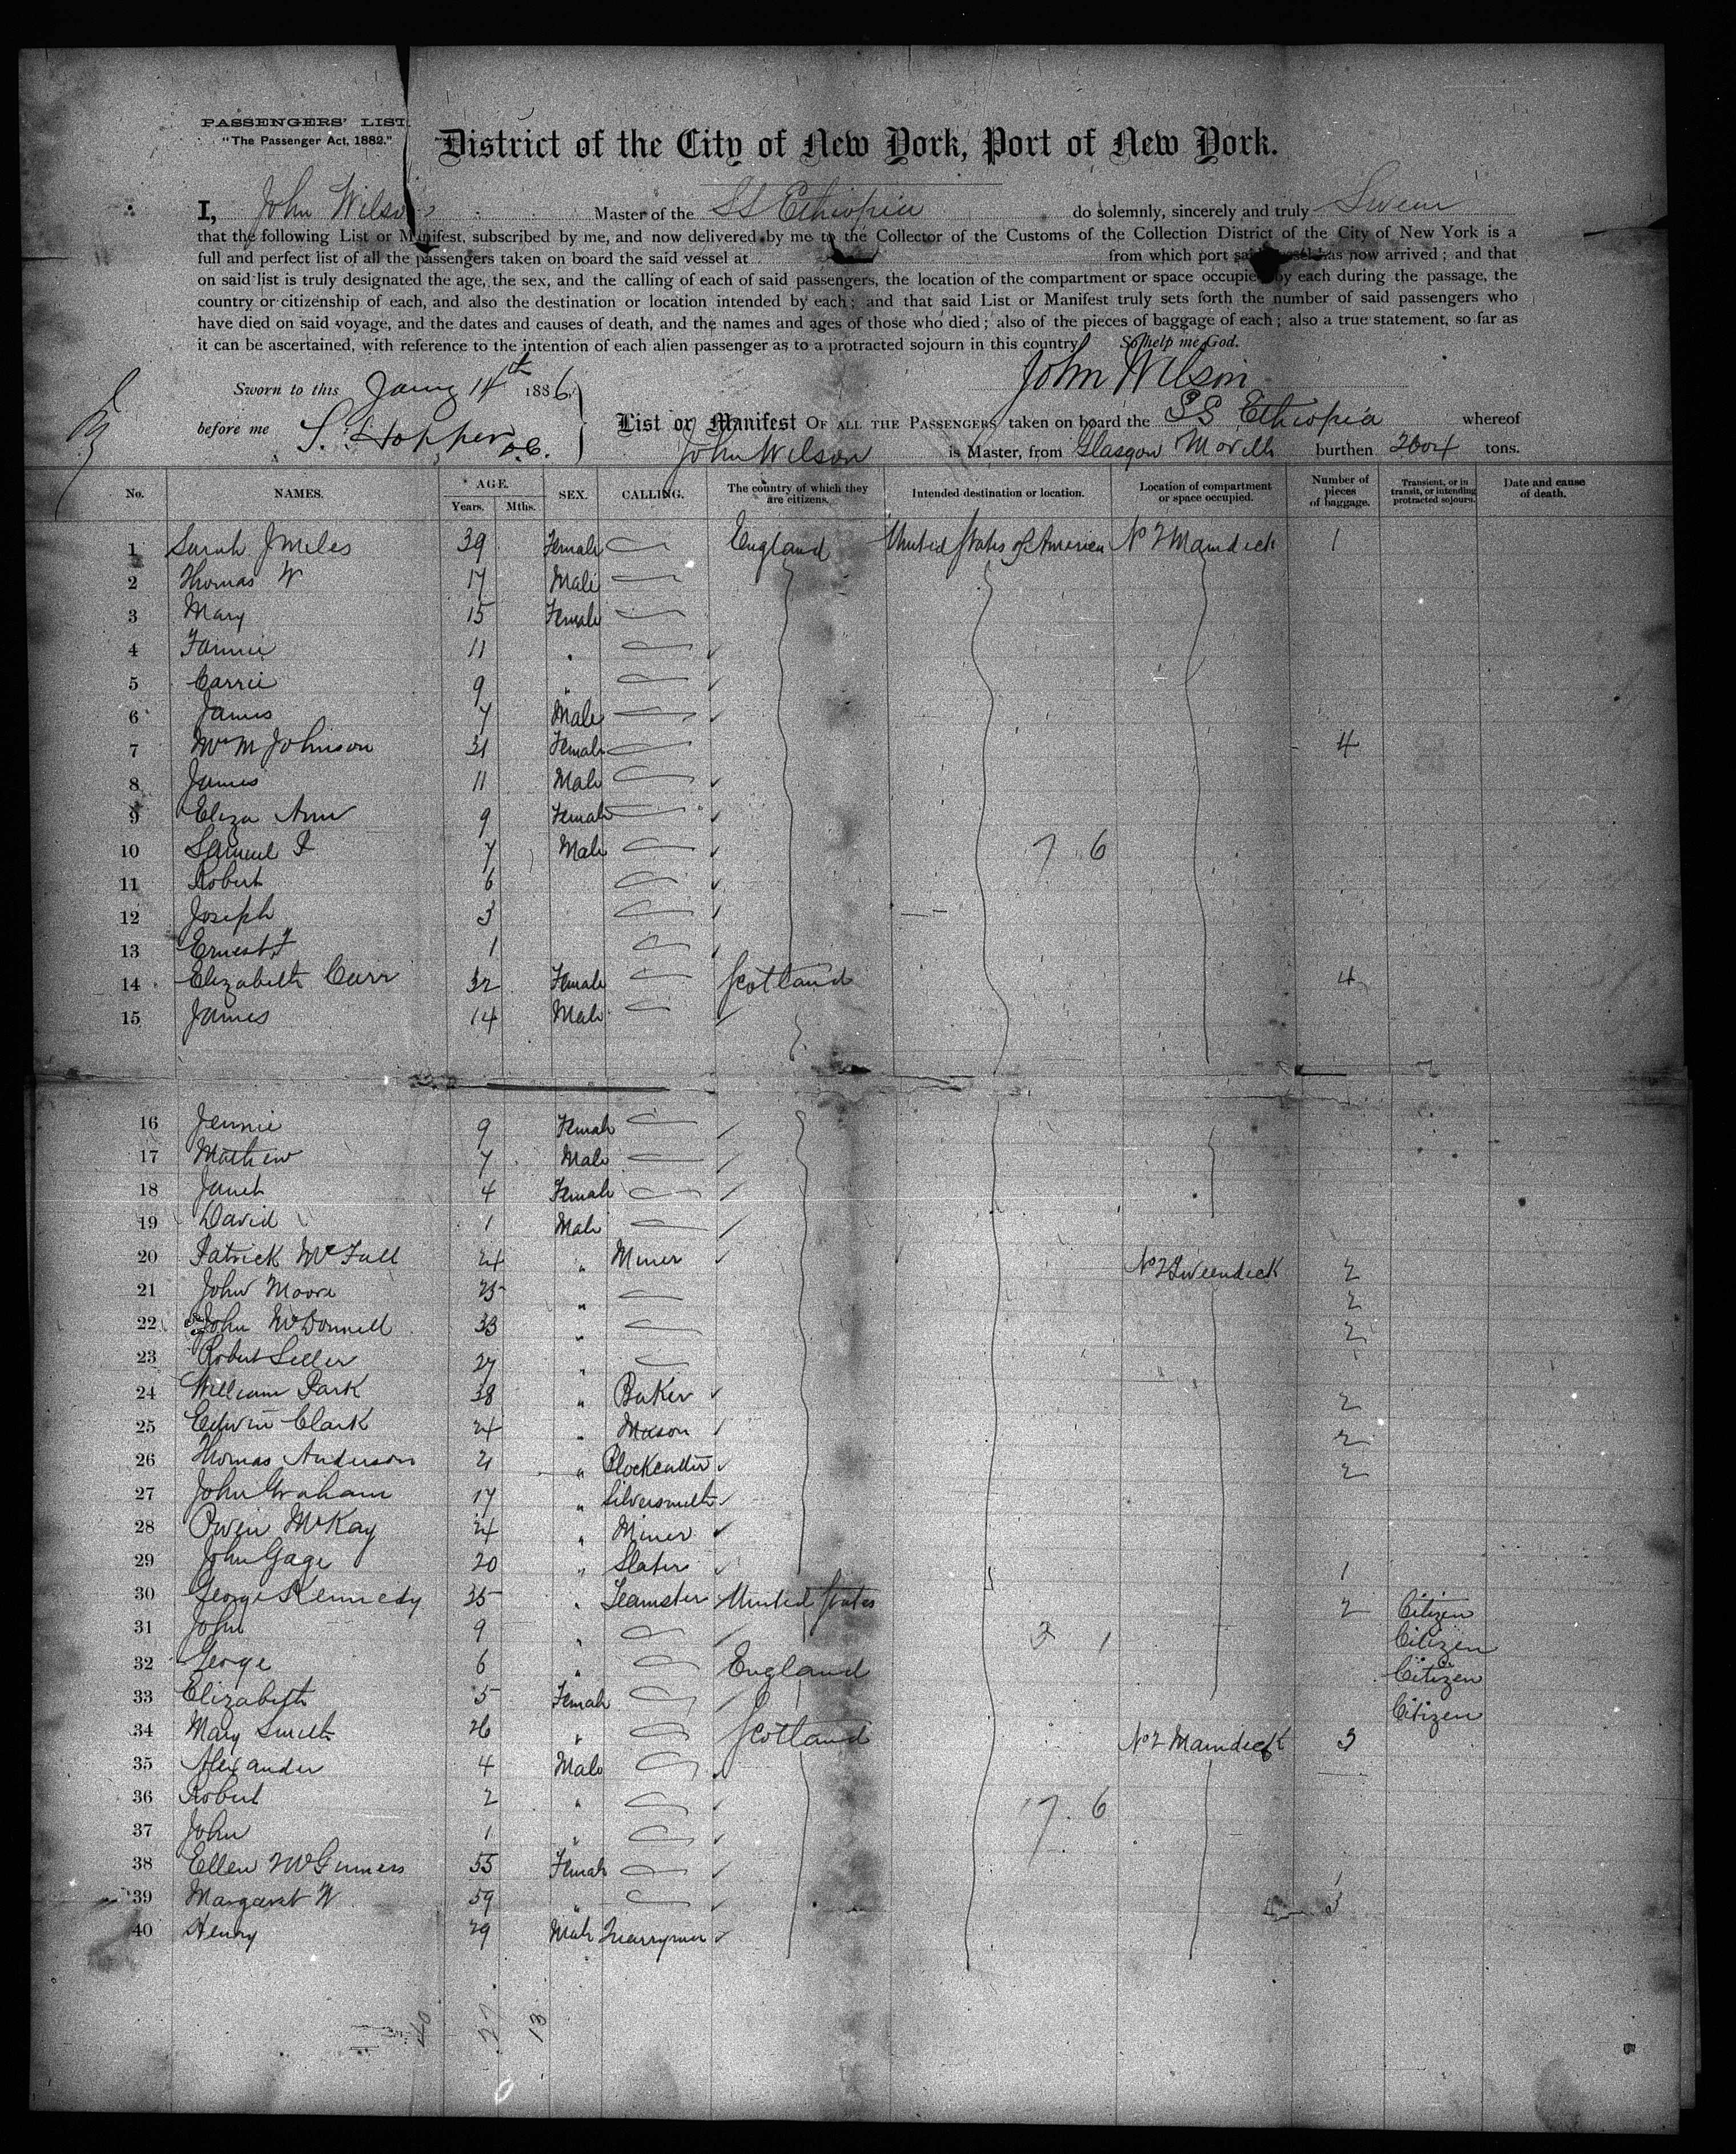 PASSENGERS' LIST.
"The Passenger Act, 1882."
District of the City of New York, Port of New York.
I, John Wilson Master of the SS Ethiopia do solemnly, sincerely and truly Swear
that the following List or Manifest, subscribed by me, and now delivered by me to the Collector of the Customs of the Collection District of the City of New York is a
full and perfect list of all the passengers taken on board the said vessel at from which port said vessel has now arrived; and that
on said list is truly designated the age, the sex, and the calling of each of said passengers, the location of the compartment or space occupied by each during the passage, the
country or citizenship of each, and also the destination or location intended by each; and that said List or Manifest truly sets forth the number of said passengers who
have died on said voyage, and the dates and causes of death, and the names and ages of those who died; also of the pieces of baggage of each; also a true statement, so far as
it can be ascertained, with reference to the intention of each alien passenger as to a protracted sojourn in this country. So help me God.
John Wilson
Sworn to this Jany 14th 1886
before me S. Hopper D.C.
List or Manifest OF ALL THE PASSENGERS taken on board the SS Ethiopia whereof
John Wilson is Master, from Glasgow Moville burthen 2004 tons.
No. NAMES. AGE. Years. Mths. SEX. CALLING. The country of which they are citizens. Intended destination or location. Location of compartment or space occupied. Number of pieces of baggage. Transient, or in transit, or intending protracted sojourn. Date and cause of death.
1 Sarah J Miles 39 Female England United States of America No 2 Maindeck 1
2 Thomas W 17 Male
3 Mary 15 Female
4 Fannie 11 "
5 Carrie 9 "
6 James 7 Male
7 Mrs M Johnson 31 Female 4
8 James 11 Male
9 Eliza Ann 9 Female
10 Samuel I 7 Male 7 6
11 Robert 6
12 Joseph 3
13 Ernest F 1
14 Elizabeth Carr 32 Female Scotland 4
15 James 14 Male
16 Jennie 9 Female
17 Mathew 7 Male
18 Janet 4 Female
19 David 1 Male
20 Patrick McFall 24 " Miner No 2 Tweendeck 2
21 John Moore 25 " 2
22 John McDonnell 33 " 2
23 Robert Seller 27 "
24 William Park 38 " Baker 2
25 Edwin Clark 24 " Mason 2
26 Thomas Anderson 21 " Blockcutter 2
27 John Graham 17 " Silversmith
28 Owen McKay 24 " Miner
29 John Gage 20 " Slater 1
30 George Kennedy 35 " Teamster United States 2 Citizen
31 John 9 " 3 1 Citizen
32 George 6 " England Citizen
33 Elizabeth 5 Female Citizen
34 Mary Smith 26 " Scotland No 2 Maindeck 3
35 Alexander 4 Male
36 Robert 2 " 7 6
37 John 1 "
38 Ellen McGinness 55 Female 1
39 Margaret W 59 " 3
40 Henry 29 Male Quarryman
40 27 13